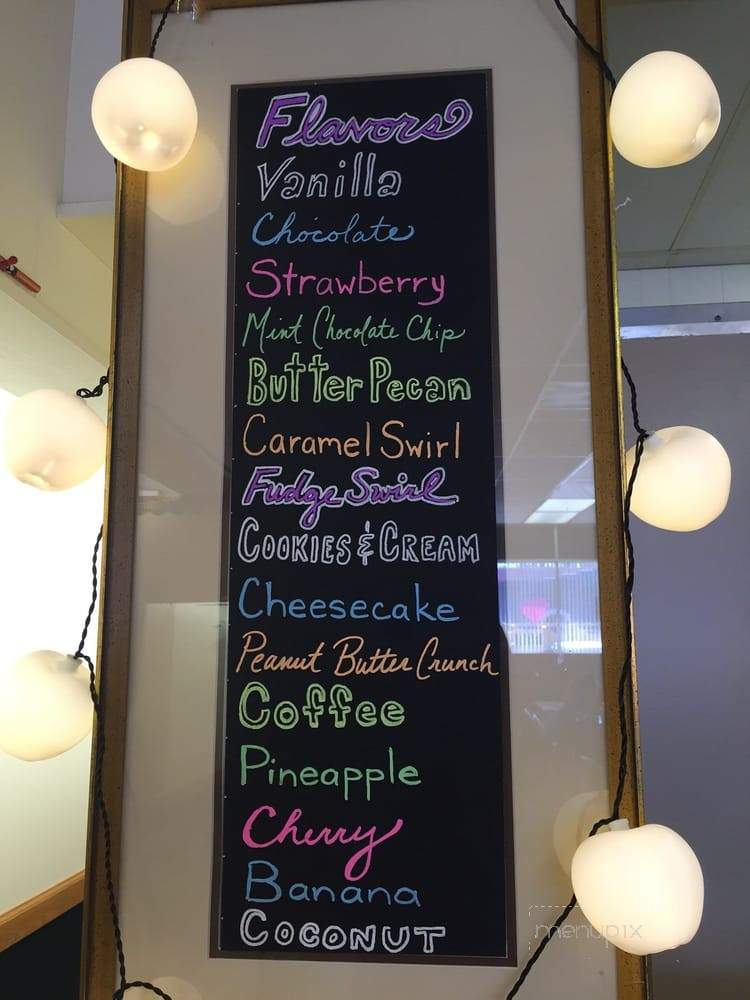 Flavors
Vanilla
Chocolate
Strawberry
Mint Chocolate Chip
Butter Pecan
Caramel Swirl
Fudge Swirl
COOKIES & CREAM
Cheesecake
Peanut Butter Crunch
Coffee
Pineapple
Cherry
Banana
COCONUT
menupix